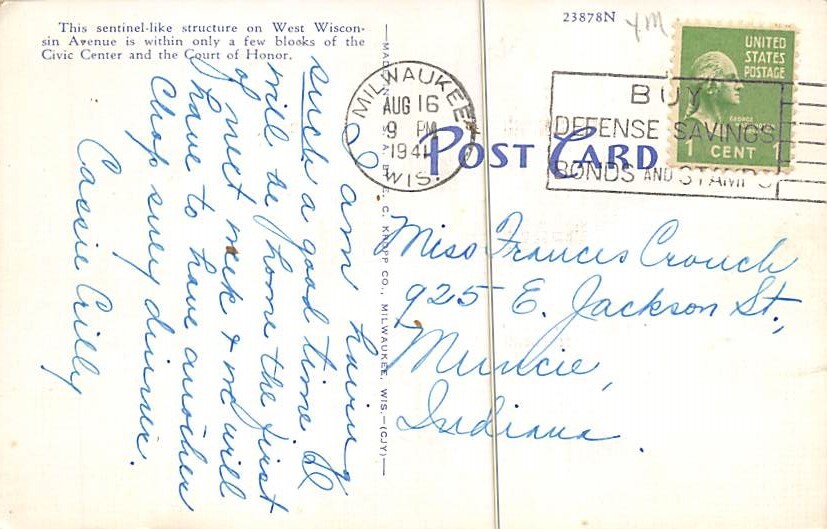 This sentinel-like structure on West Wiscon-
sin Avenue is within only a few blooks of the
Civic Center and the Court of Honor.
23878N
UNITED
STATES
POSTAGE
1 CENT 1
MILWAUKEE
AUG 16
9 PM
1941
WIS.
BUY
DEFENSE SAVINGS
BONDS AND STAMPS
POST CARD
C. KROPP CO., MILWAUKEE, WIS.—(CJY)—
I am having
such a good time I
will be home the first
of next week & we will
have to have another
Chop suey dinner.
Cassie Crilly
Miss Frances Crouch
925 E. Jackson St.,
Muncie,
Indiana.